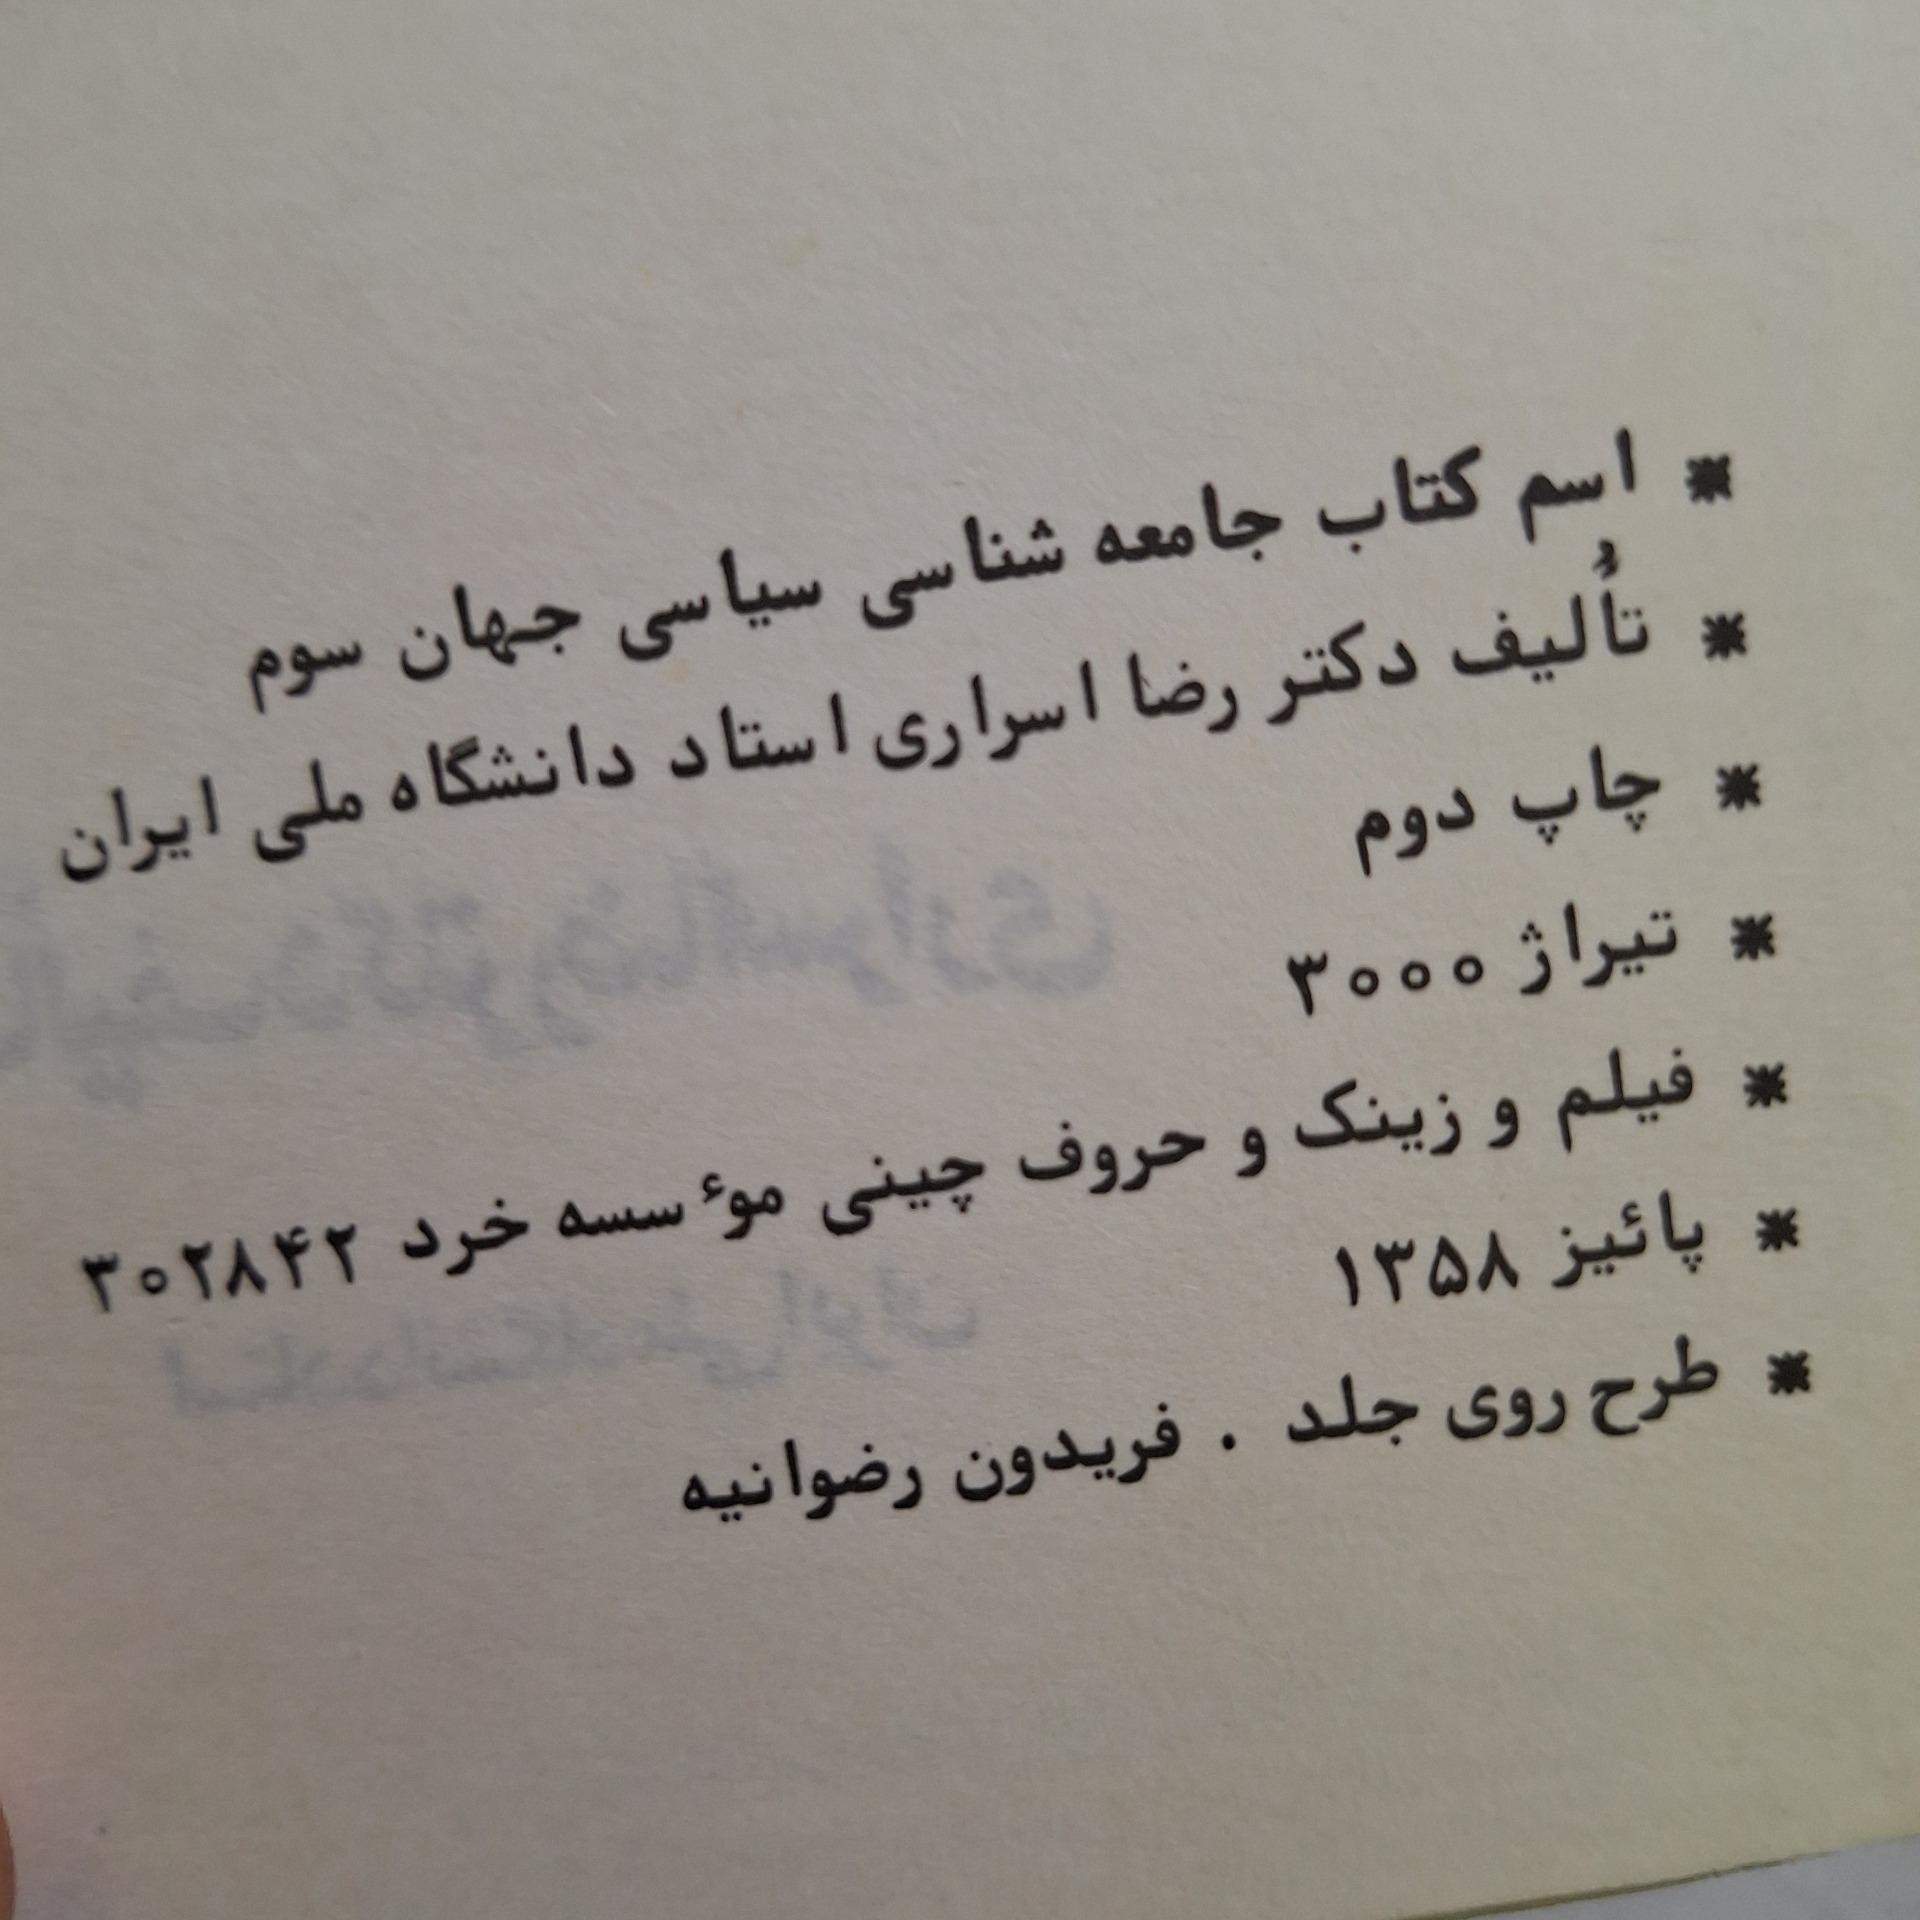 * اسم کتاب جامعه شناسی سیاسی جهان سوم
* تألیف دکتر رضا اسراری استاد دانشگاه ملی ایران
* چاپ دوم
* تیراژ ۳۰۰۰
* فیلم و زینک و حروف چینی موٴسسه خرد ۳۰۲۸۴۲
* پائیز ۱۳۵۸
* طرح روی جلد . فریدون رضوانیه